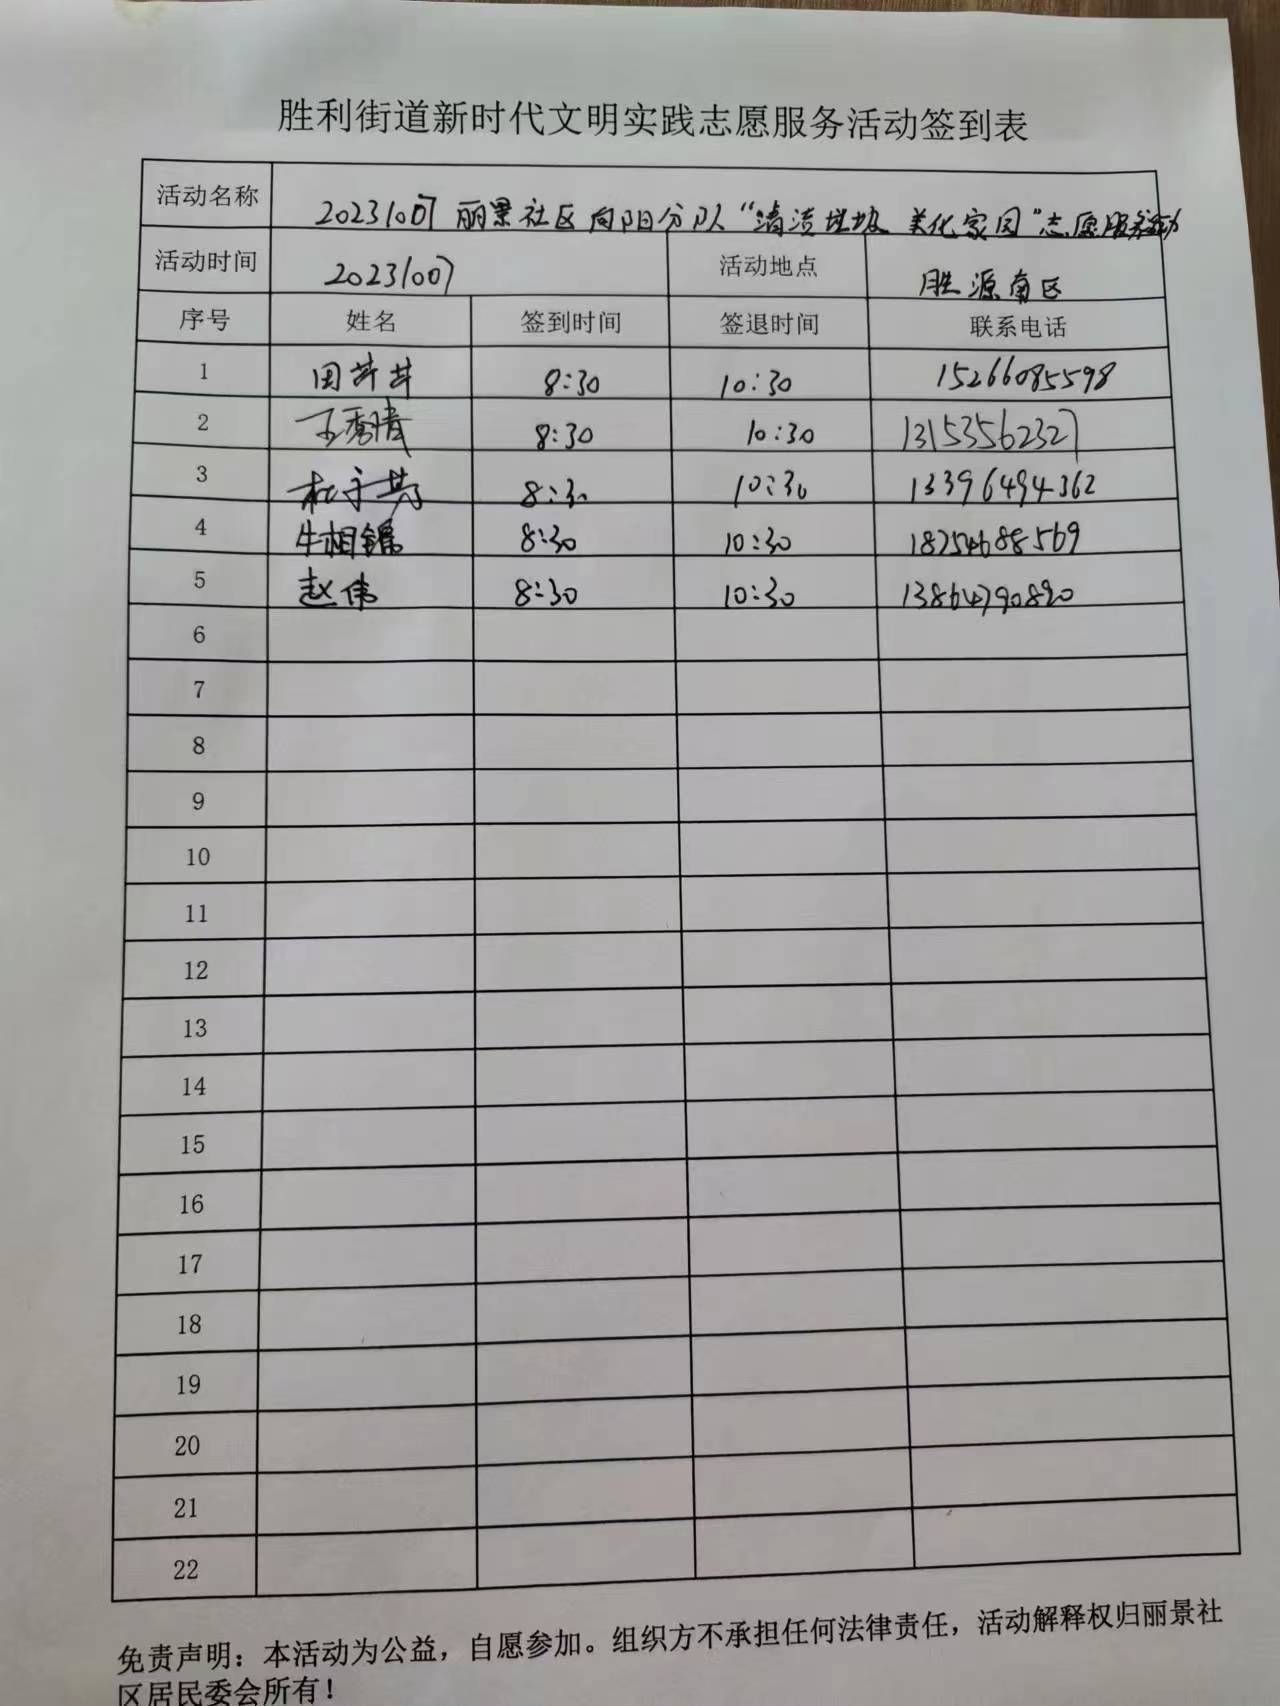 胜利街道新时代文明实践志愿服务活动签到表
活动名称 20231007 丽景社区向阳分队“清洁垃圾 美化家园”志愿服务活动
活动时间 20231007 活动地点 胜源南区
序号 姓名 签到时间 签退时间 联系电话
1 田芹芹 8:30 10:30 15266085598
2 王秀清 8:30 10:30 131535562327
3 杜守芬 8:30 10:30 13396494362
4 牛相锦 8:30 10:30 18254688569
5 赵伟 8:30 10:30 13864790890
6
7
8
9
10
11
12
13
14
15
16
17
18
19
20
21
22
免责声明：本活动为公益，自愿参加。组织方不承担任何法律责任，活动解释权归丽景社
区居民委会所有！